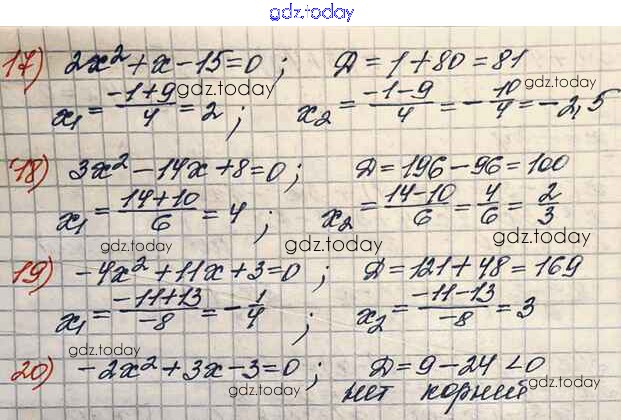 gdz.today
17) 2x² + x - 15 = 0 ; Д = 1 + 80 = 81
x₁ = (-1+9)/4 = 2 ; x₂ = (-1-9)/4 = -10/4 = -2,5
gdz.today gdz.today
18) 3x² - 14x + 8 = 0 ; Д = 196 - 96 = 100
x₁ = (14+10)/6 = 4 ; x₂ = (14-10)/6 = 4/6 = 2/3
gdz.today gdz.today gdz.today
19) -4x² + 11x + 3 = 0 ; Д = 121 + 48 = 169
x₁ = (-11+13)/-8 = -1/4 ; x₂ = (-11-13)/-8 = 3
gdz.today gdz.today
20) -2x² + 3x - 3 = 0 ; Д = 9 - 24 < 0
нет корней
gdz.today